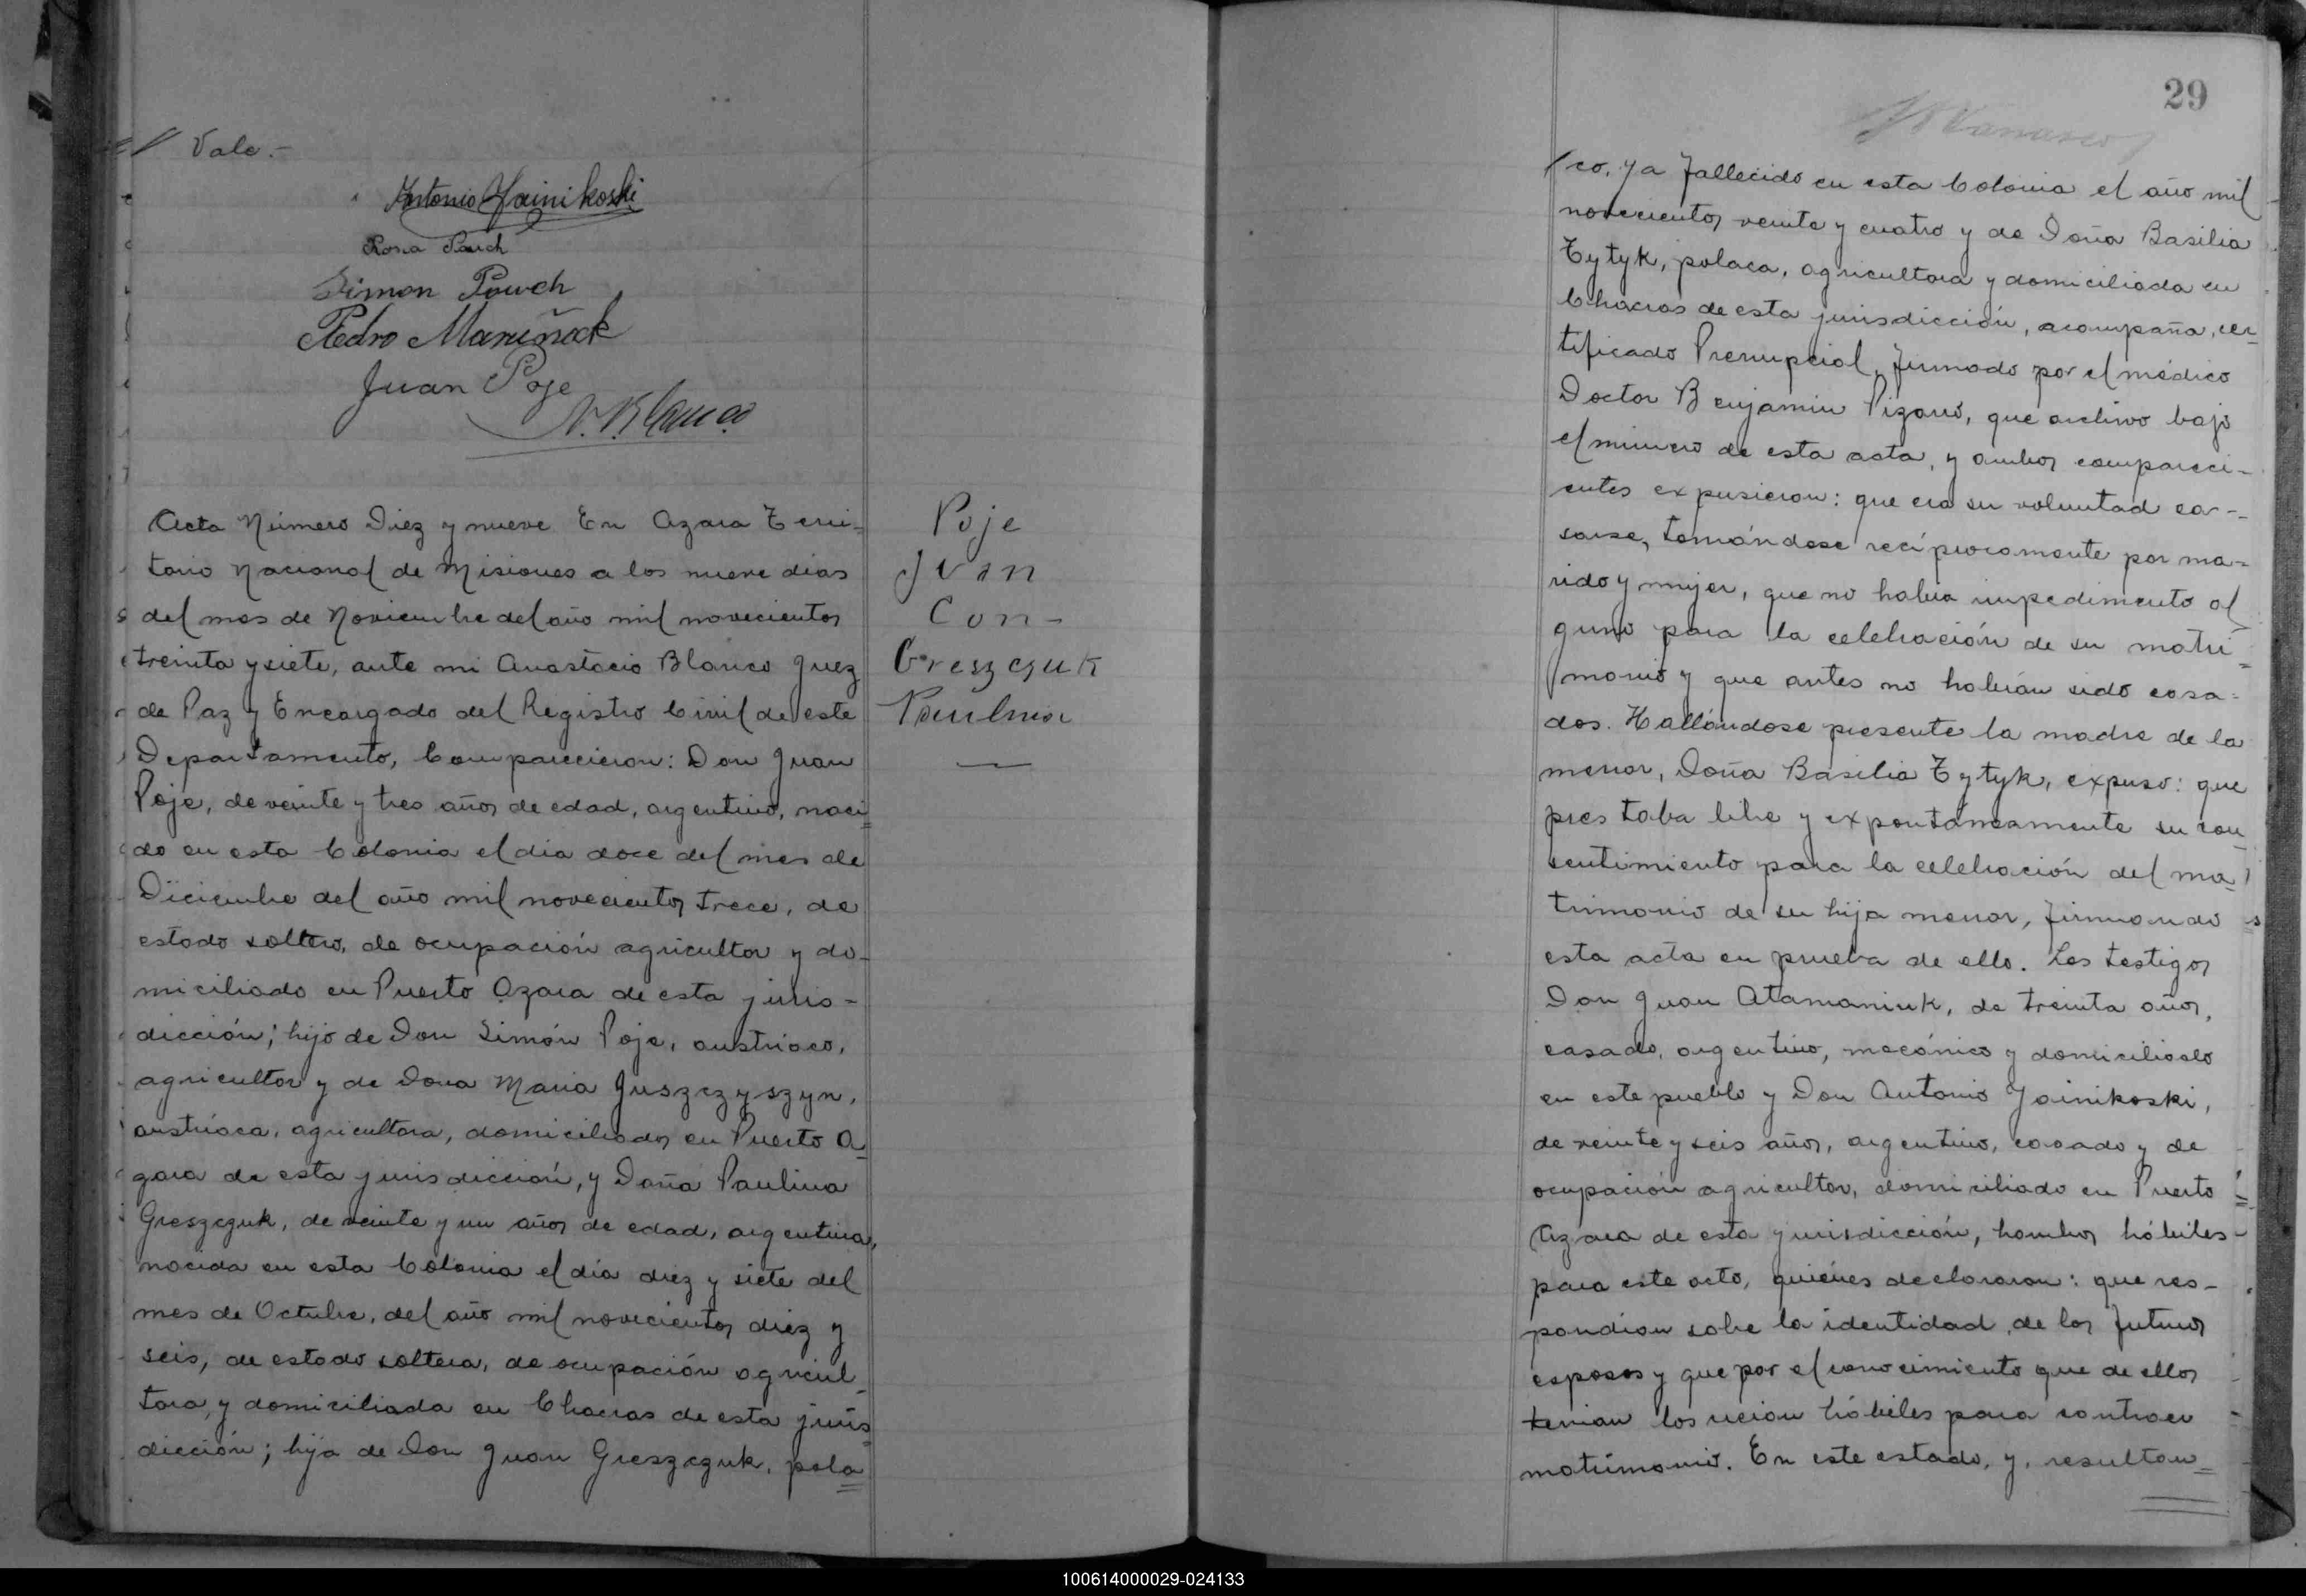 Vale.-
Antonio Jainikoski
Rosa Pauch
Simon Pauch
Pedro Mariñack
Juan Poje
A. Blanco
Acta Número Diez y nueve. En Azara Terri=
torio Nacional de Misiones a los nueve dias
del mes de Noviembre del año mil novecientos
treinta y siete, ante mi Anastacio Blanco Juez
de Paz y Encargado del Registro Civil de este
Departamento, Comparecieron: Don Juan
Poje, de veinte y tres años de edad, argentino, naci=
do en esta Colonia el dia doce del mes de
Diciembre del año mil novecientos trece, de
estado soltero, de ocupación agricultor y do-
miciliado en Puerto Azara de esta juris-
dicción; hijo de Don Simón Poje, austriaco,
agricultor y de Dona Maria Juszczyszyn,
austriaca, agricultora, domiciliados en Puerto A=
zara de esta jurisdicción, y Doña Paulina
Greszczuk, de veinte y un años de edad, argentina,
nacida en esta Colonia el dia diez y siete del
mes de Octubre, del año mil novecientos diez y
seis, de estado soltera, de ocupación agricul-
tora, y domiciliada en Chacras de esta juris=
dicción; hija de Don Juan Greszczuk, pola=
Poje
Juan
Con-
Greszczuk
Paulina
29
/co, ya fallecido en esta Colonia el año mil
novecientos veinte y cuatro y de Doña Basilia
Tytyk, polaca, agricultora y domiciliada en
Chacras de esta jurisdicción, acompaña, cer=
tificado Prenupcial, firmado por el médico
Doctor Benjamin Pizarro, que archivo bajo
el número de esta acta, y ambos compareci-
entes expusieron: que era su voluntad ca--
sarse, tomándose recíprocamente por ma=
rido y mujer, que no habia impedimento al
guno para la celebración de su matri=
monio y que antes no habian sido casa=
dos. Hallándose presente la madre de la
menor, Doña Basilia Tytyk, expuso: que
prestaba libre y expontáneamente su con=
sentimiento para la celebración del ma=
trimonio de su hija menor, firmando
esta acta en prueba de ello. Los testigos
Don Juan Atamaniuk, de treinta años,
casado, argentino, mecánico y domiciliado
en este pueblo y Don Antonio Jainikoski,
de veinte y seis años, argentino, casado y de
ocupación agricultor, domiciliado en Puerto
Azara de esta jurisdicción, hombres hábiles
para este acto, quiénes declararon: que res-
pondian sobre la identidad de los futuros
esposos y que por el conocimiento que de ellos
tenian los creian hábiles para contraer
matrimonio. En este estado, y, resultan=
100614000029-024133